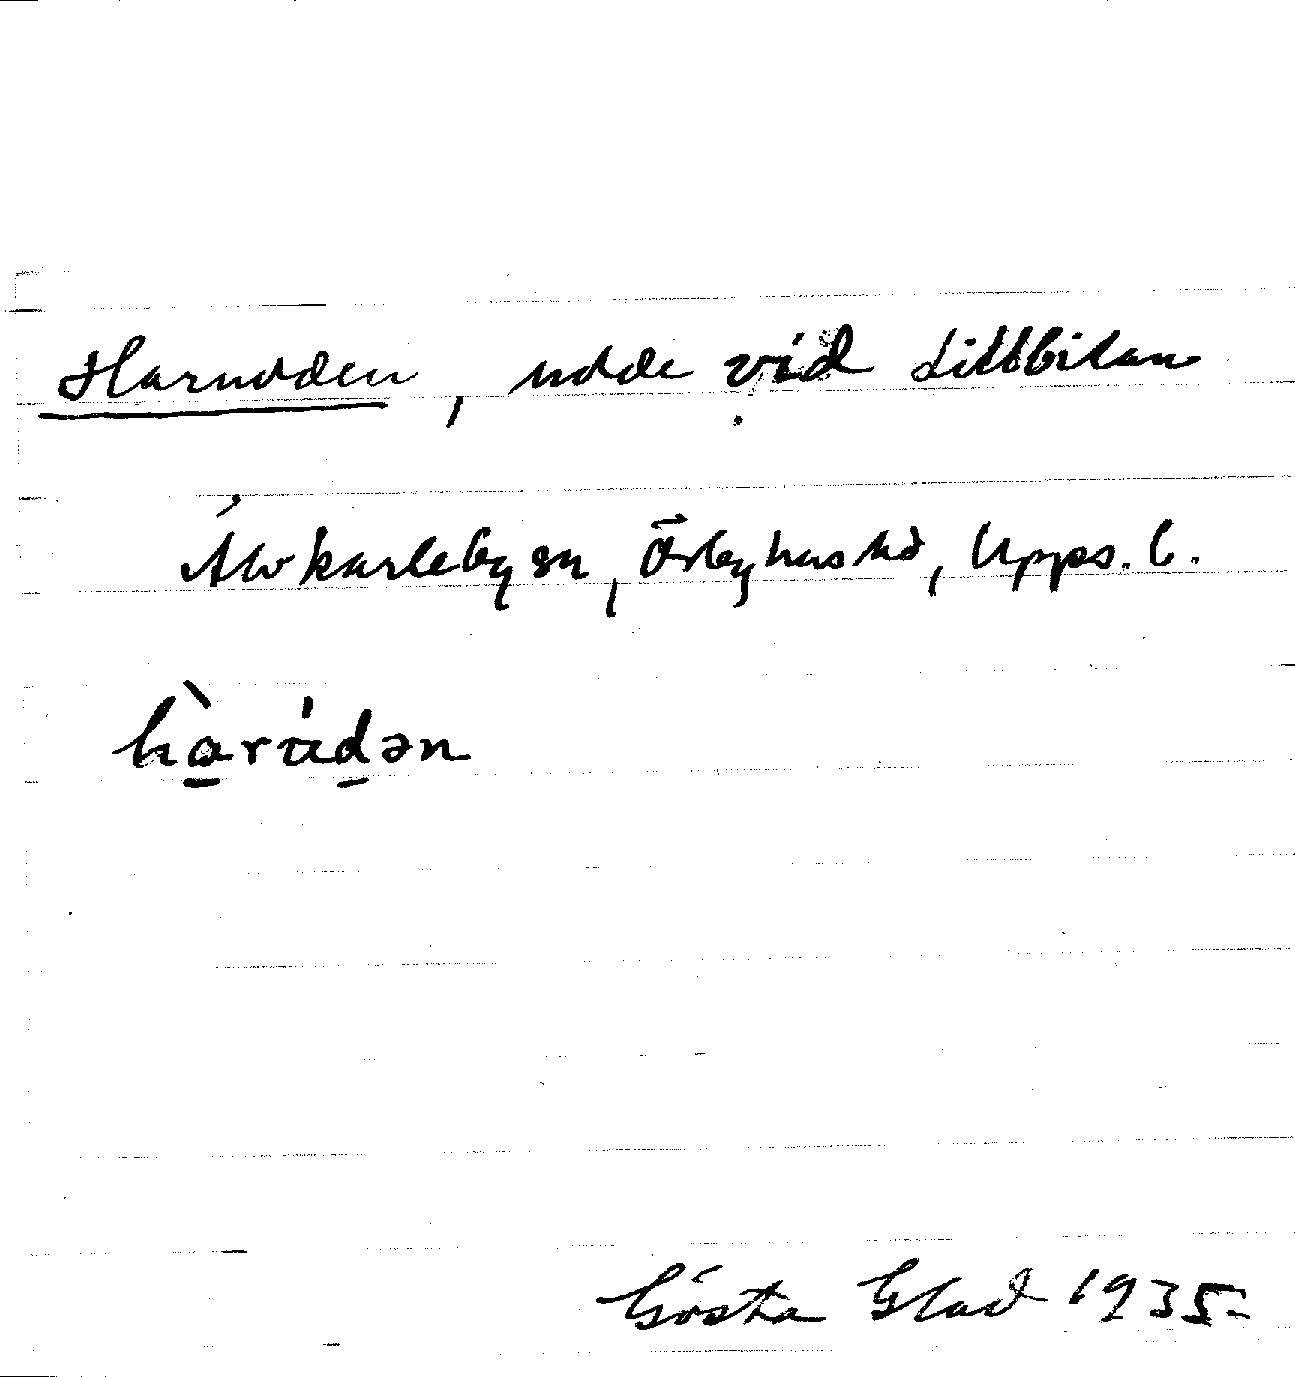 Harudden, udde vid Lillbitan
Älvkarleby sn, Örbyhus hd, Upps. l.
hàrúdən
Gösta Glad 1935